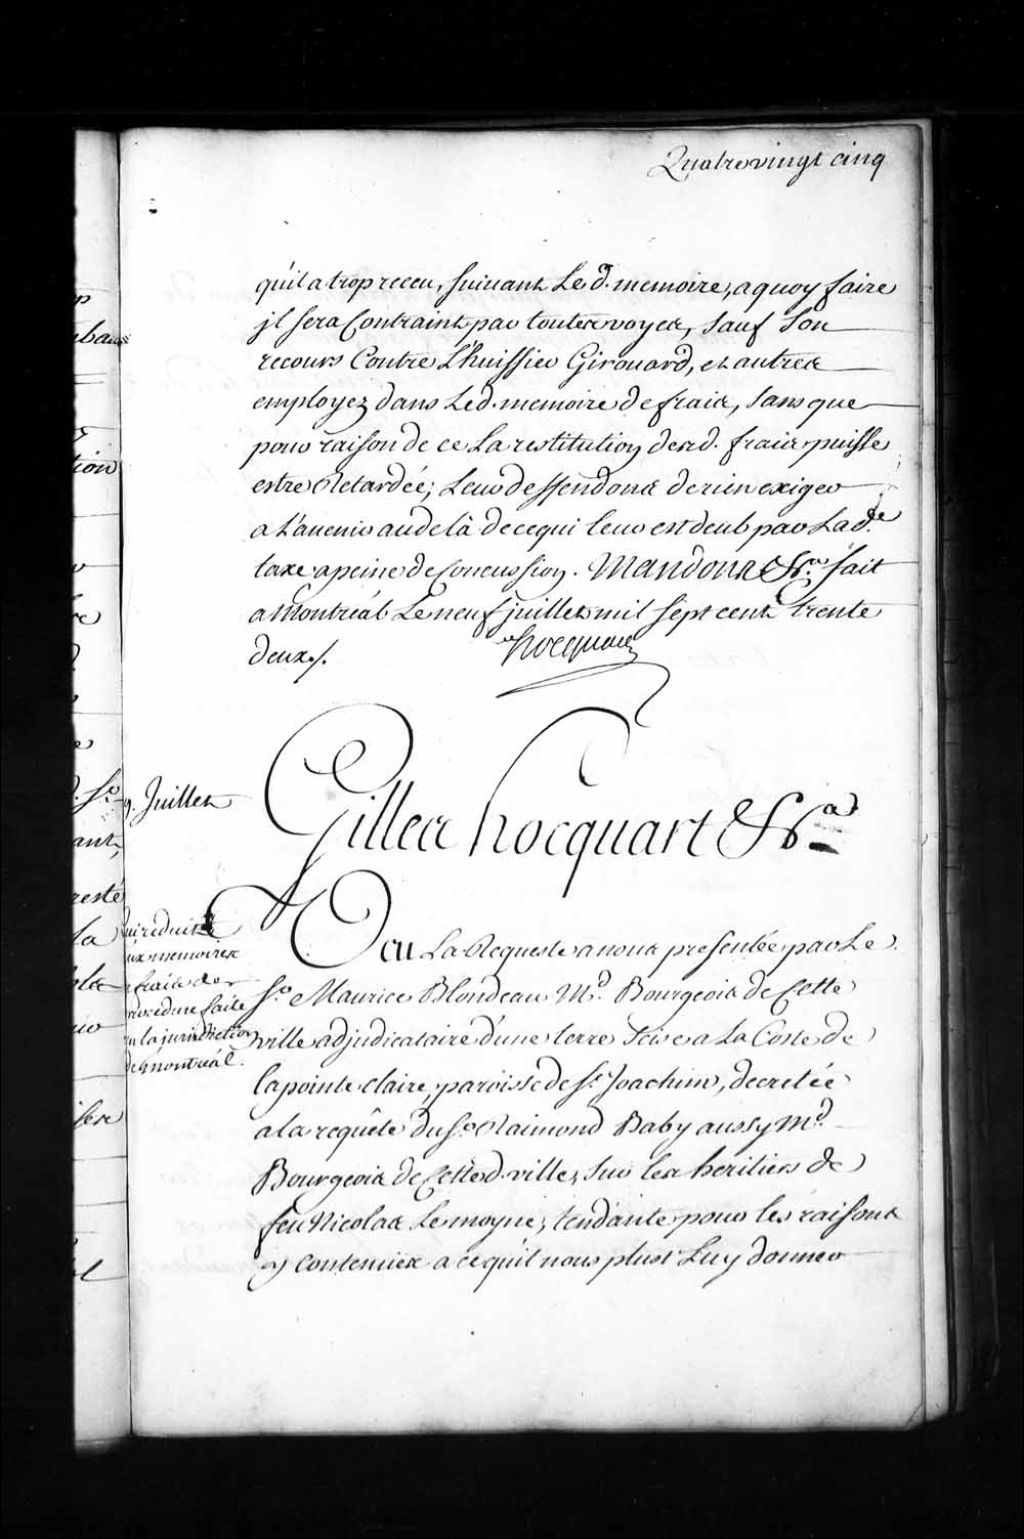 Quatrevingt cinq
qu'il a trop receu, suivant Led. memoire, a quoy faire
jl sera Contraint par toutes voyes, sauf Son
recours Contre L'huissier Girouard, et autres
employez dans Led. memoire de frais, sans que
pour raison de ce La restitution desd. frais puisse
estre Retardée; Leur deffendons de rien exiger
a L'auenir au dela de ce qui leur est deub par Lad.e
taxe a peine de Concussion. Mandons &c.a fait
a Montreál Le neuf juillet mil sept cent trente
deux /.
hocquart
9. Juillet
Gilles hocquart &c.a
qui reduit
aux memoires
frais des
procedures faites
en la jurisdiction
de Montreál.
Veu La Requeste a nous presentée par Le
S.r Maurice Blondeau M.d Bourgeois de Cette
ville adjudicataire d'une terre scise a La Coste de
la pointe claire, paroisse de S.t Joachim, decretée
a la requête du S.r Raimond Baby aussy M.d
Bourgeois de Cetted. ville, sur les heritiers de
feu Nicolas Lemoyne; tendante pour les raisons
y contenües a ce qu'il nous plust Luy donner
p
tion
S.r
ant,
resté
la